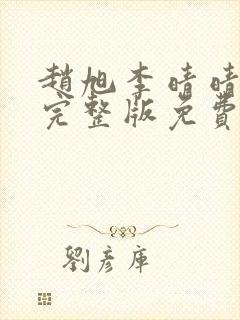 趙旭李晴晴
完整版免費
劉彥庫